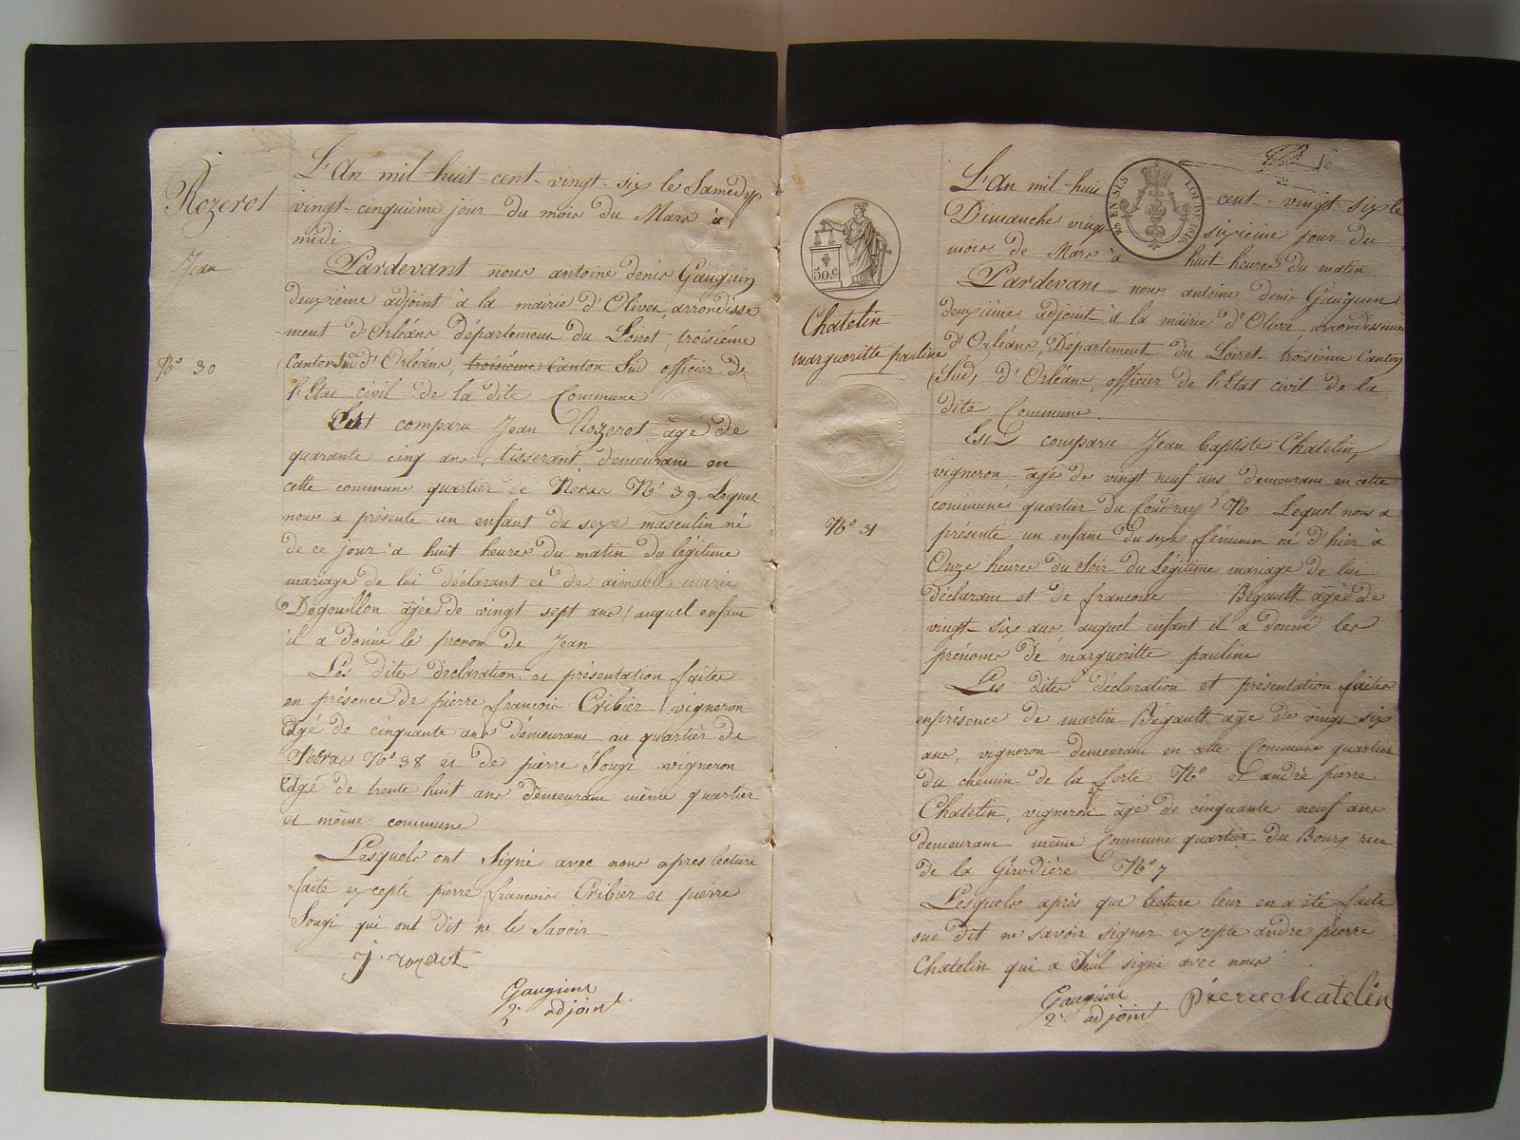 Rozerot
Jean
N.º 30
L'An mil-huit-cent-vingt-six le Samedy
vingt-cinquième jour du mois du Mars à
midi
Pardevant nous antoine denis Gauguin
deuxième adjoint à la mairie d'Olivet, arrondisse
-ment d'Orléans Département du Loiret, troisième
Canton Sud d'Orléans, troisième Canton Sud officier de
l'Etat civil de la dite Commune
Est comparu Jean Rozerot âgé de
quarante cinq ans, tisserant demeurant en
cette commune quartier de N.º 39. Lequel
nous a présenté un enfant du sexe masculin né
de ce jour à huit heures du matin du légitime
mariage de lui déclarant et de aimable marie
Dogouillon âgée de vingt sept ans, auquel enfant
il a donné le prenom de Jean
Les dites déclaration et présentation faites
en présence de pierre françois Cribier, vigneron
Agé de cinquante ans demeurant au quartier de
N.º 38 et de pierre Sougi vigneron
Agé de trente huit ans demeurant même quartier
et même commune
Lesquels ont Signé avec nous apres lecture
faite excepté pierre françois Cribier et pierre
Sougi qui ont dit ne le Savoir
J. rozerot
Gauguin
2.e adjoint
50.c
Chatelin
margueritte pauline
N.º 31
L'An mil-huit-cent-vingt-six le
Dimanche vingt-sixième jour du
mois de Mars à huit heures du matin
Pardevant nous antoine denis Gauguin
deuxième adjoint à la mairie d'Olivet arrondissement
d'Orléans, Département du Loiret troisième Canton
Sud, d'Orléans, officier de l'Etat civil de la
dite Commune.
Est comparu Jean baptiste Chatelin,
vigneron âgé de vingt neuf ans demeurant en cette
commune quartier du N.º Lequel nous a
présenté un enfant du sexe féminin né d'hier à
Onze heures du Soir du Légitime mariage de lui
déclarant et de francoise Bégault âgée de
vingt-six ans, auquel enfant il a donné les
prénoms de margueritte pauline
Les dites déclaration et présentation faites
enprésence de martin Bégault âgé de vingt six
ans, vigneron demeurant en cette Commune quartier
du chemin de la ferté N.º et andré pierre
Chatelin, vigneron âgé de cinquante neuf ans
demeurant même Commune quartier du Bourg rue
de la Girodière N.º 7
Lesquels après que lecture leur en a été faite
ont dit ne savoir signer excepté andré pierre
Chatelin qui a Seul signé avec nous
Gauguin
2.e adjoint
pierrechatelin